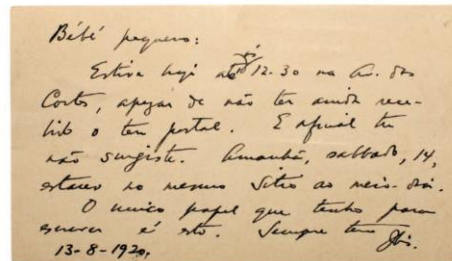 Bébé pequeno:
Estive hoje até ás 12-30 na Av. das
Cortes, apezar de não ter ainda rece-
bido o teu postal. E afinal tu
não surgiste. Amanhã, sabbado, 14,
estarei no mesmo sitio ao meio-dia.
O unico papel que tenho para
escrever é este. Sempre teu
13-8-1920.